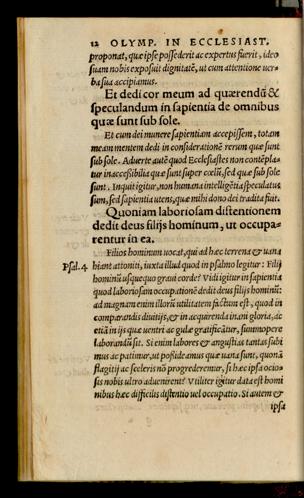 12 OLYMP. IN ECCLESIAST.
proponat, quæ ipse possederit ac expertus fuerit, ideo
suam nobis exposuit dignitatē, ut cum attentione uer-
ba sua accipiamus.
Et dedi cor meum ad quærendū &
speculandum in sapientia de omnibus
quæ sunt sub sole.
Et cum dei munere sapientiam accepissem, totam
meam mentem dedi in considerationē rerum quæ sunt
sub sole. Aduerte autē quod Ecclesiastes non contēpla-
tur inaccessibilia quæ sunt super cœlū, sed quæ sub sole
sunt. Inquit igitur, non humana intelligētia speculatus
sum, sed sapientia utens, quæ mihi dono dei tradita fuit.
Quoniam laboriosam distentionem
dedit deus filijs hominum, ut occupa-
rentur in ea.
Filios hominum uocat, qui ad hæc terrena & uana
Psal. 4. hiant attoniti, iuxta illud quod in psalmo legitur: Filij
hominū usquequo graui corde? Vidi igitur in sapientia
quod laboriosam occupationē dedit deus filijs hominū:
ad magnam enim illorū utilitatem factum est, quod in
comparandis diuitijs, & in acquirenda inani gloria, ac
etiā in ijs quæ uentri ac gulæ gratificātur, summopere
laborandū sit. Si enim labores & angustias tantas subi
mus ac patimur, ut possideamus quæ uana sunt, quonā
flagitij ac sceleris nō progrederemur, si hæc ipsa ocio-
sis nobis ultro aduenirent? Vtiliter igitur data est homi
nibus hæc difficilis distentio uel occupatio. Si autem &
ipsa